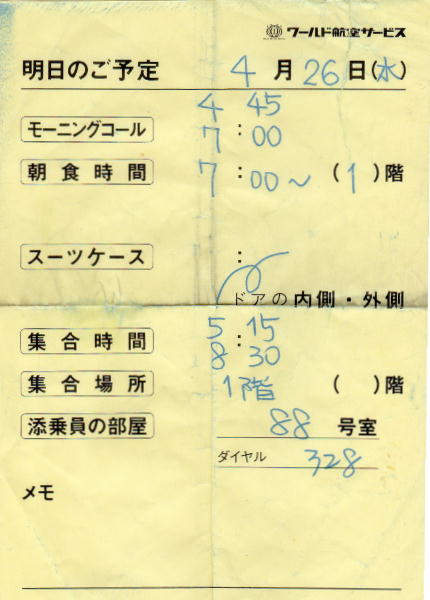 ワールド航空サービス
明日のご予定 4月26日(水)
4 45
モーニングコール 7:00
朝食時間 7:00~ (1)階
スーツケース :
ドアの内側・外側
5 15
集合時間 8:30
集合場所 1階 ( )階
添乗員の部屋 88号室
ダイヤル 328
メモ